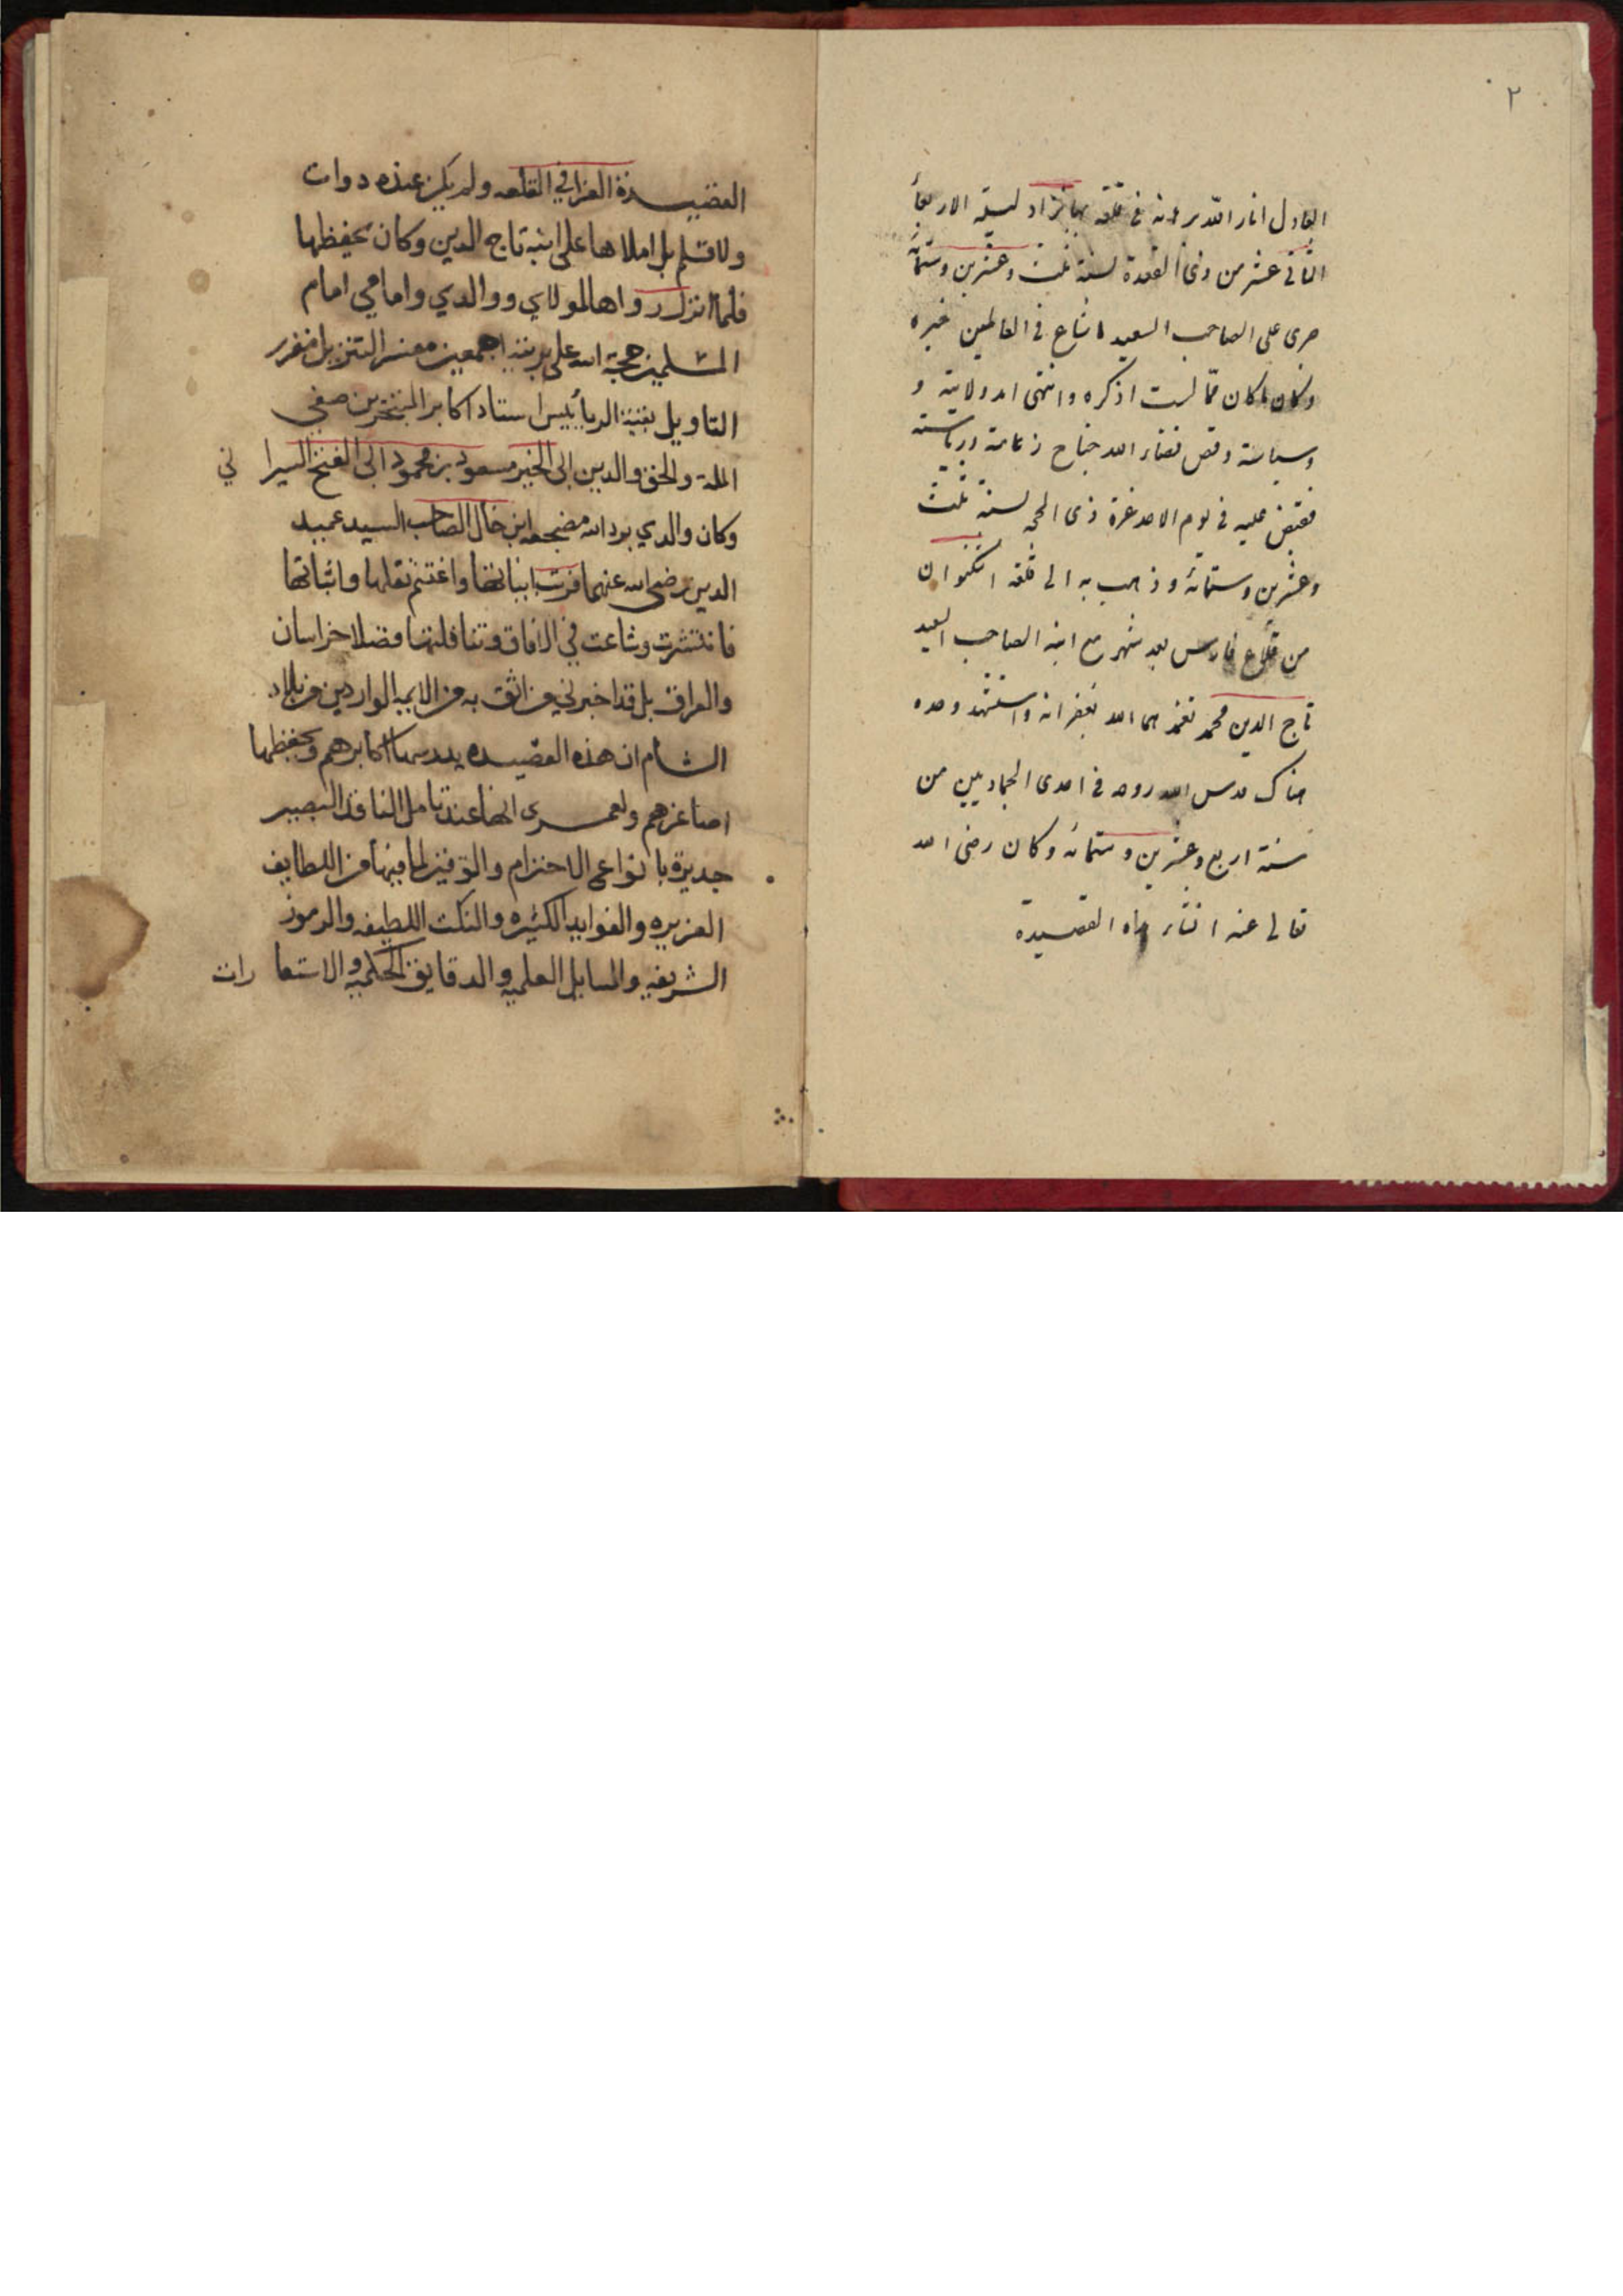 ٢
العادل انار الله برهانه فى قلعة بهانزاد ليلة الاربعأ
الثانى عشر من ذى القعدة لسنة ثلث وعشرين وستمائة
جرى على الصاحب السعيد ما شاع فى العالمين خبره
وكان ما كان مما لست اذكره وانتهى امد ولايته و
وسياسته وقص قضاء الله جناح زعامته ورياسته
فقبض عليه فى يوم الاحد غرة ذى الحجه لسنة ثلث
وعشرين وستمائة وذهب به الى قلعة اشكنوان
من قلاع فارس بعد شهر مع ابنه الصاحب السعيد
تاج الدين محمد تغمدهما الله بغفرانه واستشهد وحده
هناك قدس الله روحه فى احدى الجماديين من
سنة اربع وعشرين وستمائه وكان رضى الله
تعالى عنه انشاء هذه القصيدة
القصيدة الغرا في القلعه ولم يكن عنده دوات
ولا قلم بل املاها على ابنه تاج الدين وكان يحفظها
فلما انزل رواها لمولاي ووالدي وامامي امام
المسلمين حجة الله على بريته اجمعين مفسر التنزيل مقرر
التاويل بقية الربانيين استاد اكابر المتبحرين صفي
الملة والحق والدين ابى الخير مسعود بن محمود ابى الفتح السيرا في
وكان والدي برد الله مضجعه ابن خال الصاحب السيد عميد
الدين رضي الله عنهما اثباتها واغتنم نقلها واثباتها
فانتشرت وشاعت في الافاق وتناقلتها فضلا خراسان
والعراق بل قد اخبرني من اثق به من الايمه الواردين من بلاد
الشام ان هذه القصيده يدرسها اكابرهم ويحفظها
اصاغرهم ولعمرى انها عند تامل الناقد البصير
جديرة بانواع الاحترام والتوقير لما فيها من اللطايف
الغزيره والفوايد الكثيره والنكت اللطيفه والرموز
الشريفه والمسايل العلميه والدقايق الحكميه والاستعا رات